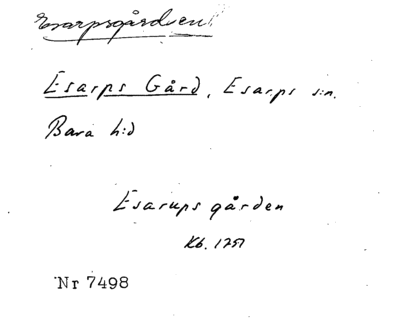 Esarpsgården
Esarps Gård, Esarps s:n.
Bara h:d
Esarups gården
Kb. 1751
Nr 7498